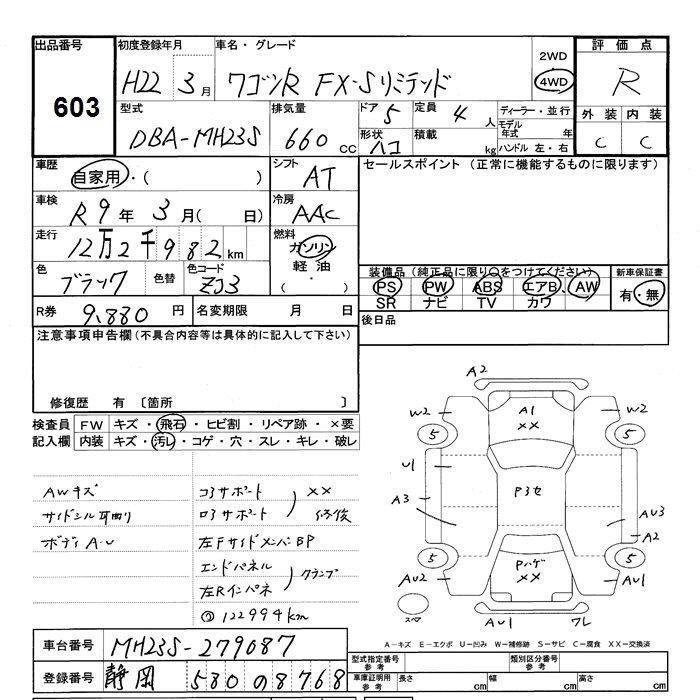 出品番号 初度登録年月 車名・グレード 2WD 評価点
603 H22 3月 ワゴンR FX-Sリミテッド 4WD R
型式 排気量 ドア 5 定員 4人 ディーラー・並行 外装 内装
DBA-MH23S 660cc 形状 ハコ 積載 kg モデル年式 年 C C
ハンドル 左・右
車歴 自家用・( ) シフト AT セールスポイント (正常に機能するものに限ります)
車検 R9年3月( 日) 冷房 AAC
走行 12万2千982km 燃料 ガソリン・軽油・( )
色 ブラック 色替 色コード ZJ3 装備品(純正品に限り○をつけてください) 新車保証書
PS PW ABS エアB、AW 有・無
SR ナビ TV カワ
R券 9,880円 名変期限 月 日 後日品
注意事項申告欄(不具合内容等は具体的に記入して下さい)
修復歴 有 〔箇所 〕
検査員 FW キズ・飛石・ヒビ割・リペア跡・×要
記入欄 内装 キズ・汚レ・コゲ・穴・スレ・キレ・破レ
AWキズ コアサポート XX
サイドシル 口アサポート 修復
ボディA-U 左FサイドメンバBP
エンドパネル クランプ
左Rインパネ
122994km
A2
W2 A1 XX W2
5 5
U1
A3 P3セ AU3
A2
5 Pハゲ XX 5
AU2 AU1
スペア AU1 ワレ
A-キズ E-エクボ U-凹み W-補修跡 S-サビ C-腐食 XX-交換済
車台番号 MH23S-279087 型式指定番号 参考 類別区分番号 参考
登録番号 静岡 580 の 8768 車庫証明用 参考 長さ cm 幅 cm 高さ cm